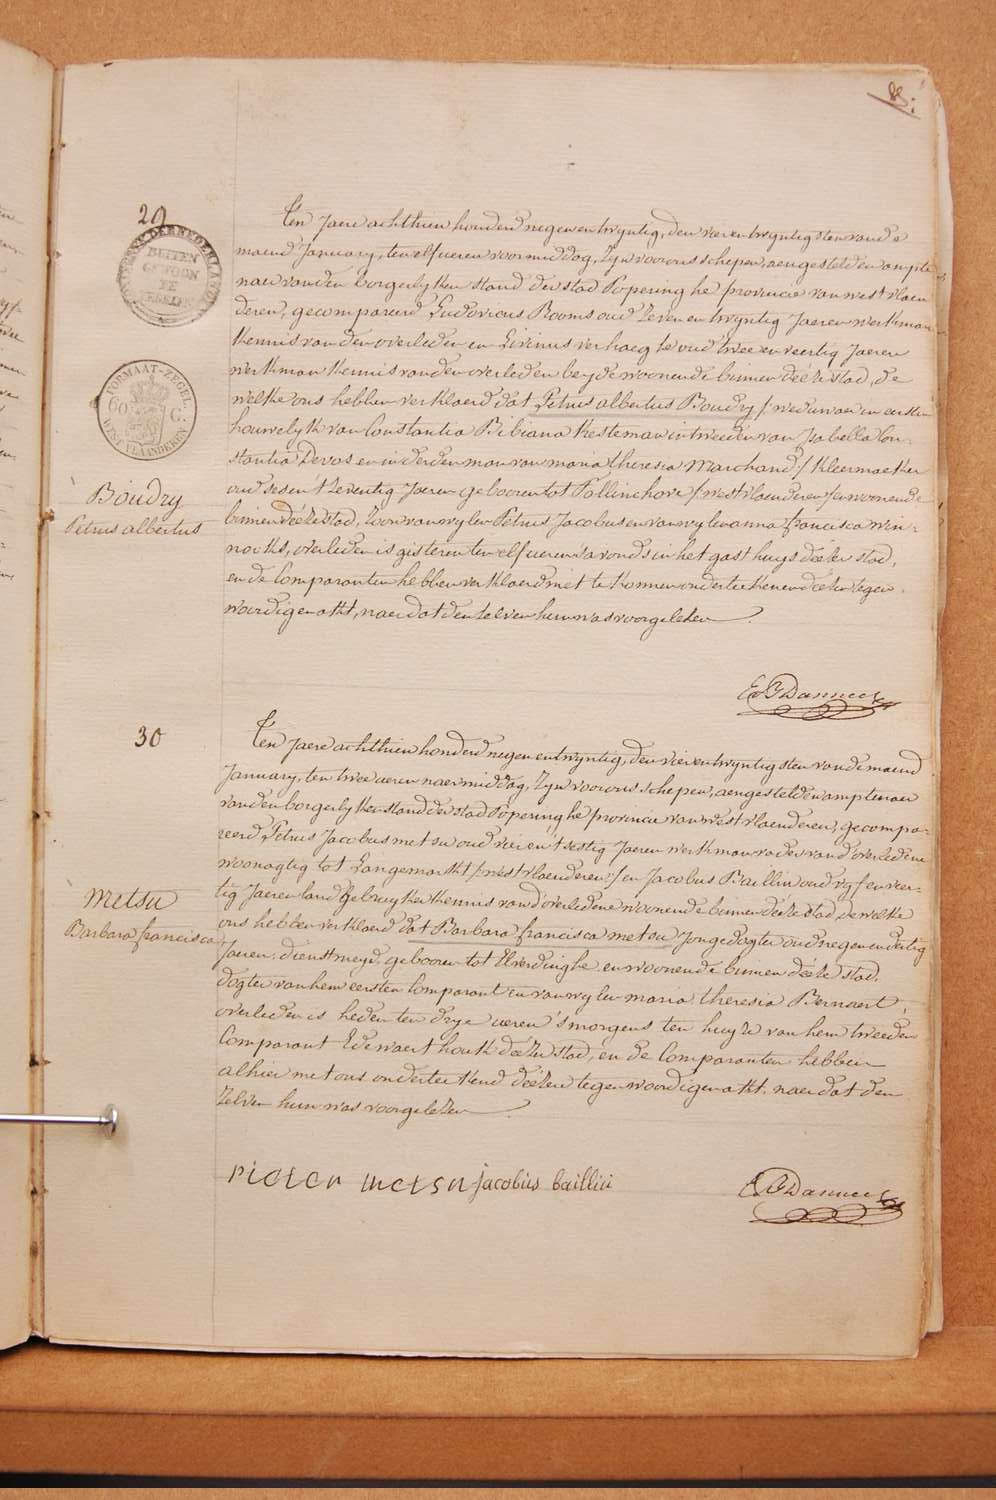 85:
29
BUITEN
GEWOON
FORMAAT-ZEGEL
60 C.
WEST VLAANDEREN
Boudry
Petrus albertus
Ten Jaere achthien honderd negen en twyntig, den vier en twyntigsten van de
maend January, ten elf ueren voormiddag, Zyn voor ons schepen, aengestelden ampte-
naer van den borgerlyken stand der stad Poperinghe provincie van westvlaen
deren, gecompareerd Ludovicus Rooms oud Zeven en twyntig Jaeren werkman
kennis van den overleden en Livinus verhaeghe oud twee en veertig Jaeren
werkman kennis van den overleden beyde woonende binnen déeze stad, de
welke ons hebben verklaerd dat Petrus albertus Boudry / weduwaer in eersten
houwelyk van Constantia Bibiana Kesteman in tweeden van Isabella Con-
stantia Devos en in derden man van maria theresia Marchand / kleermaeker
oud ses en t'zeventig Jaeren gebooren tot Pollinchove / westvlaenderen / en woonende
binnen déeze stad, Zoon van wylen Petrus Jacobus en van wylen anna francisca win-
nocks, overleden is gisteren ten elf ueren s'avonds in het gasthuys déezer stad,
en de Comparanten hebben verklaerd niet te konnen onderteekenen déezen tegen-
woordigen akt, naer dat den zelven hun was voorgelezen.
E. B Danneel
30
Metsu
Barbara francisca
Ten Jaere achthien honderd negen en twyntig, den vier en twyntigsten van de maend
January, ten twee ueren naermiddag, Zyn voor ons schepen, aengestelden amptenaer
van den borgerlyken stand der stad Poperinghe provincie van westvlaenderen, gecompa-
reerd Petrus Jacobus metsu oud vier en t'sestig Jaeren werkman vader van d'overledene
woonagtig tot Langemarkt / westvlaenderen / en Jacobus Baillin oud vyf en veer-
tig Jaeren landgebruyker kennis van d'overledene woonende binnen déeze stad, de welke
ons hebben verklaerd dat Barbara francisca metsu Jongedogter oud negen en dertig
Jaeren dienstmeyd gebooren tot Elverdinghe en woonende binnen déeze stad,
dogter van hem eersten Comparant en van wylen maria theresia Bernaert,
overleden is heden ten drye ueren s'morgens ten huyze van hem tweeden
Comparant Edewaert houk déezer stad, en de Comparanten hebben
alhier met ons onderteekend déezen tegenwoordigen akt, naer dat den
zelven hun was voorgelezen.
Pieter metsu jacobüs baillin
E. B Danneel